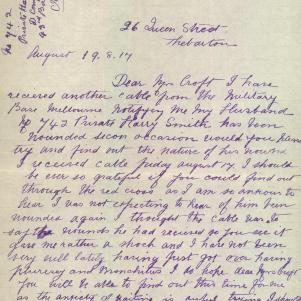 No 742
Private
D Com
43rd Ba
26 Queen Street
Thebarton
August 19. 8. 17
Dear Mrs Croft I have
recieved another cable from the Military
Base Melbourne Notifying Me My Husband
No 742 Private Harry Smith has been
wounded secon occasion would you please
try and find out the nature of his wound
I recieved cable friday august 17. I should
be ever so grateful if you could find out
through the red cross as I am so anxious to
hear I was not expecting to hear of him been
wounded again I thought the cable was to
say the wounds he had recieved so you see it
gave me rather a shock and I have not been
very well lately having just got over having
pleurecy and Bronchitus I do hope dear Mrs Croft
You will be able to find out this time for me
as the anxiety of waiting is awful